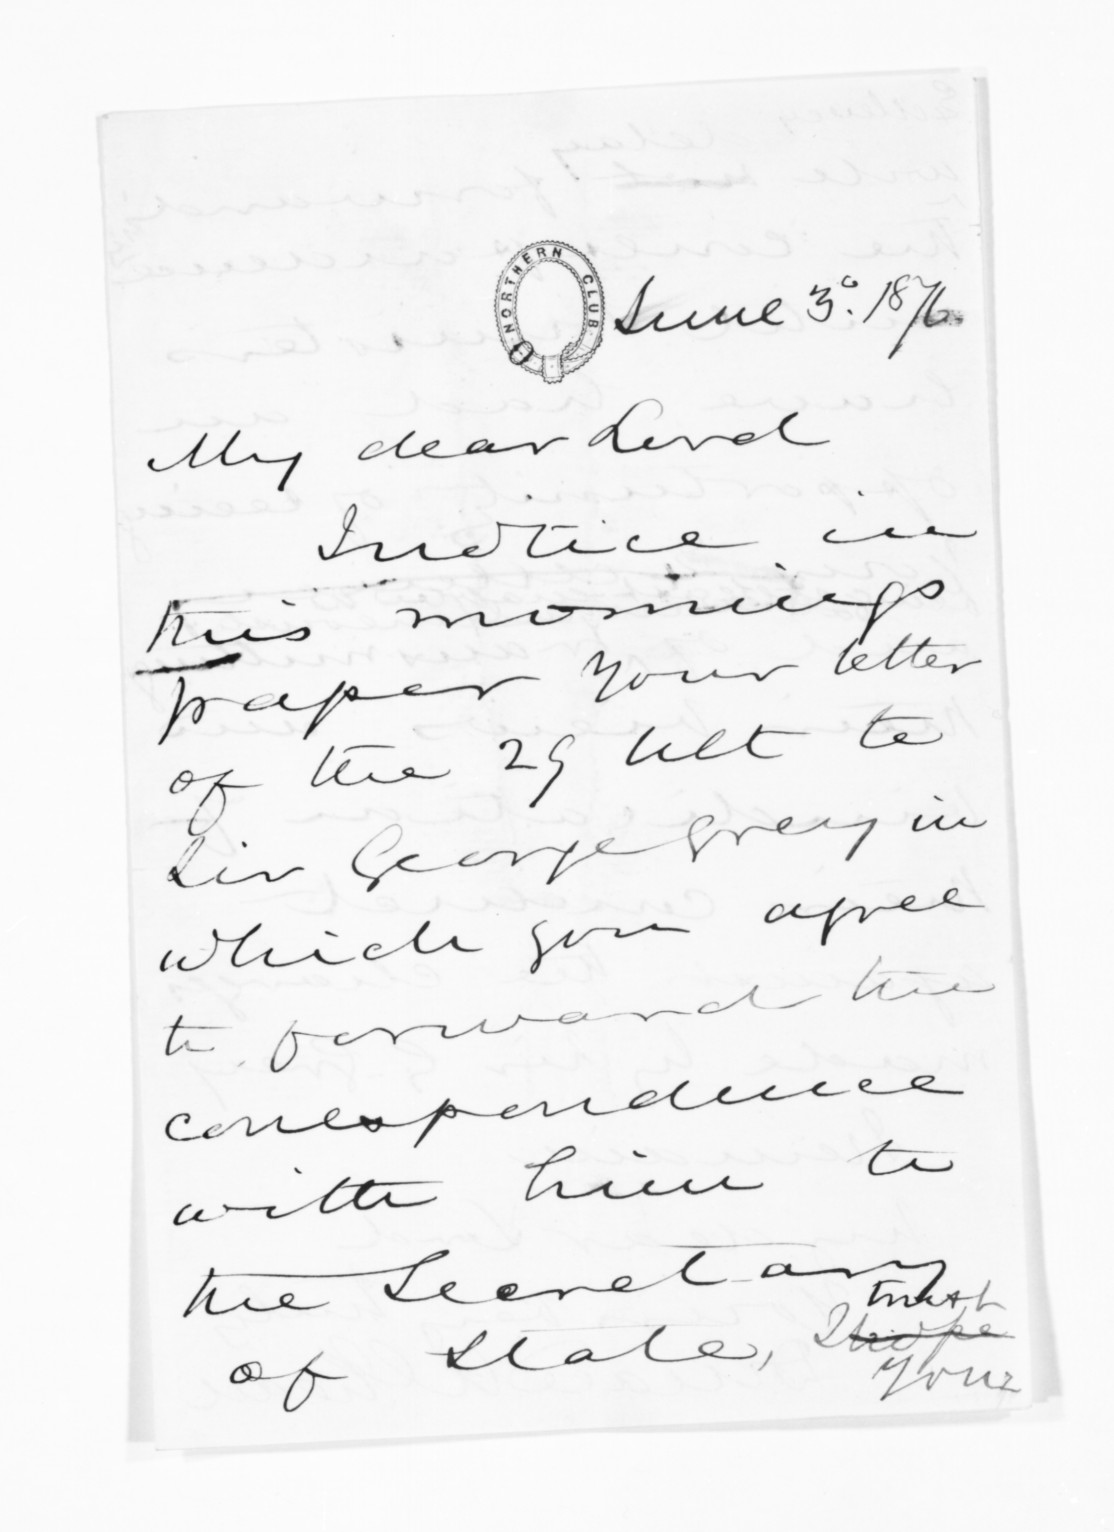 NORTHERN CLUB
June 3º. 1876
My dear Lord
I notice in
this mornings
paper your letter
of the 29 Ult to
Sir George Grey in
which you agree
to forward the
correspondence
with him to
the Secretary
of State, I hope
trust
Your